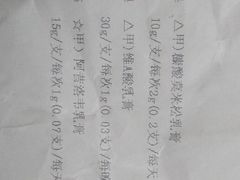 △ 甲) 糠酸莫米松乳膏
10g/支/每次2g(0.2支)/每天
△ 甲) 维A酸乳膏
30g/支/每次1g(0.03支)/每晚
☆ 甲) 阿昔洛韦乳膏
15g/支/每次1g(0.07支)/每天